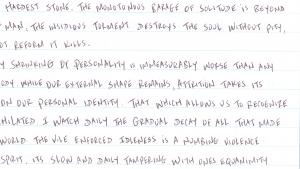 HARDEST STONE. THE MONOTONOUS BARAGE OF SOLITUDE IS BEYOND
MAN. THE INSIDIOUS TORMENT DESTROYS THE SOUL WITHOUT PITY,
NOT REFORM IT KILLS.
SHRINKING OF PERSONALITY IS IMMEASURABLY WORSE THAN ANY
ODY WHILE OUR EXTERNAL SHAPE REMAINS, ATTRITION TAKES ITS
ON OUR PERSONAL IDENTITY. THAT WHICH ALLOWS US TO RECOGNIZE
HILATED. I WATCH DAILY THE GRADUAL DECAY OF ALL THAT MADE
WORLD THE VILE ENFORCED IDLENESS IS A NUMBING VIOLENCE
SPIRIT, ITS SLOW AND DAILY TAMPERING WITH ONES EQUANIMITY